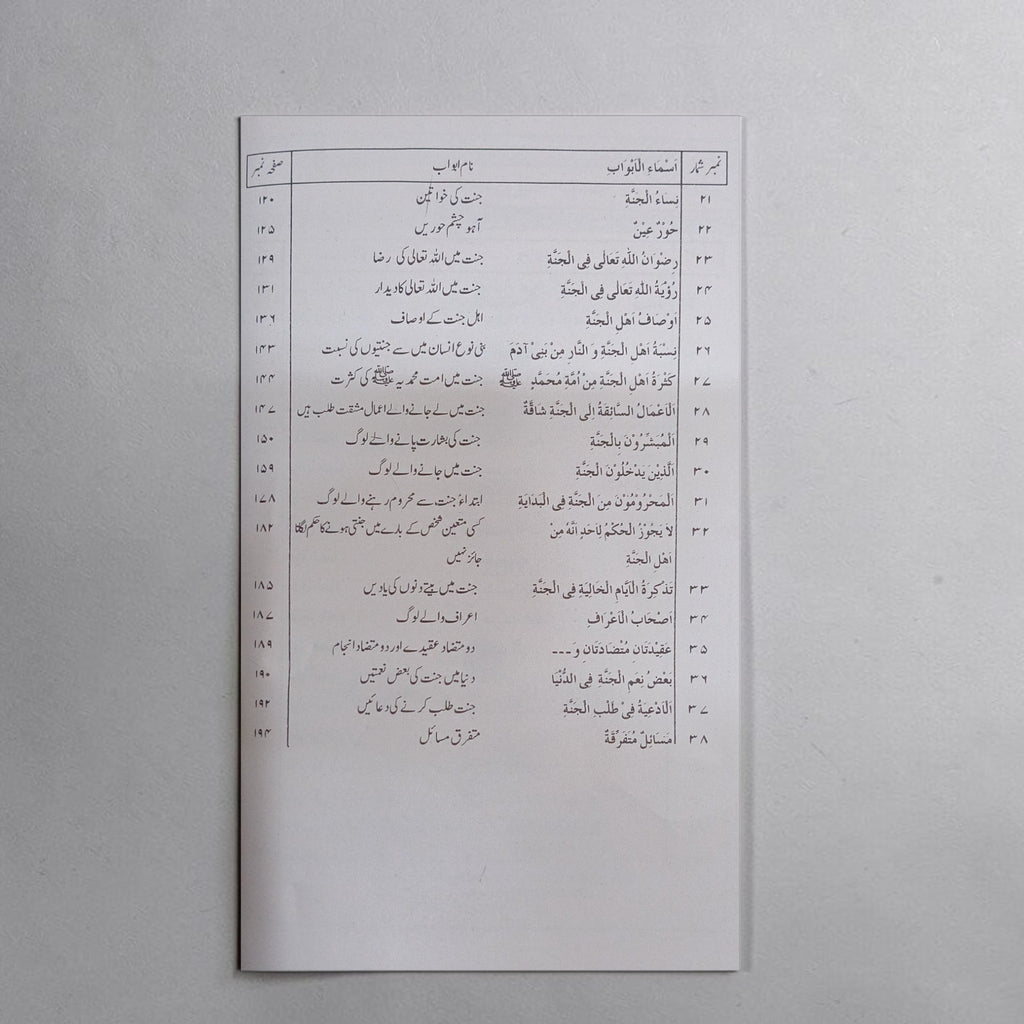 نمبر شمار اَسْمَاءِ الْاَبْوَابِ نام ابواب صفحہ نمبر
۲۱ نِسَاءُ الْجَنَّةِ جنت کی خواتین ۱۲۰
۲۲ حُوْرٌ عِيْنٌ آہو چشم حوریں ۱۲۵
۲۳ رِضْوَانُ اللّٰهِ تَعَالٰى فِى الْجَنَّةِ جنت میں اللہ تعالی کی رضا ۱۲۹
۲۴ رُؤْيَةُ اللّٰهِ تَعَالٰى فِى الْجَنَّةِ جنت میں اللہ تعالی کا دیدار ۱۳۱
۲۵ اَوْصَافُ اَهْلِ الْجَنَّةِ اہل جنت کے اوصاف ۱۳۶
۲۶ نِسْبَةُ اَهْلِ الْجَنَّةِ وَ النَّارِ مِنْ بَنِىْ آدَمَ بنی نوع انسان میں سے جنتیوں کی نسبت ۱۴۳
۲۷ كَثْرَةُ اَهْلِ الْجَنَّةِ مِنْ اُمَّةِ مُحَمَّدٍ ﷺ جنت میں امت محمدیہ ﷺ کی کثرت ۱۴۴
۲۸ اَلْاَعْمَالُ السَّائِقَةُ اِلَى الْجَنَّةِ شَاقَّةٌ جنت میں لے جانے والے اعمال مشقت طلب ہیں ۱۴۷
۲۹ اَلْمُبَشَّرُوْنَ بِالْجَنَّةِ جنت کی بشارت پانے والے لوگ ۱۵۰
۳۰ اَلَّذِيْنَ يَدْخُلُوْنَ الْجَنَّةِ جنت میں جانے والے لوگ ۱۵۹
۳۱ اَلْمَحْرُوْمُوْنَ مِنَ الْجَنَّةِ فِى الْبَدَايَةِ ابتداءً جنت سے محروم رہنے والے لوگ ۱۷۸
۳۲ لَا يَجُوْزُ الْحُكْمُ لِاَحَدٍ اَنَّهُ مِنْ کسی متعین شخص کے بارے میں جنتی ہونے کا حکم لگانا ۱۸۲
اَهْلِ الْجَنَّةِ جائز نہیں
۳۳ تَذْكِرَةُ الْاَيَّامِ الْخَالِيَةِ فِى الْجَنَّةِ جنت میں بیتے دنوں کی یادیں ۱۸۵
۳۴ اَصْحَابُ الْاَعْرَافِ اعراف والے لوگ ۱۸۷
۳۵ عَقِيْدَتَانِ مُتَضَادَتَانِ وَ --- دو متضاد عقیدے اور دو متضاد انجام ۱۸۹
۳۶ بَعْضُ نِعَمِ الْجَنَّةِ فِى الدُّنْيَا دنیا میں جنت کی بعض نعمتیں ۱۹۰
۳۷ اَلْاَدْعِيَةُ فِىْ طَلْبِ الْجَنَّةِ جنت طلب کرنے کی دعائیں ۱۹۲
۳۸ مَسَائِلٌ مُتَفَرِّقَةٌ متفرق مسائل ۱۹۴